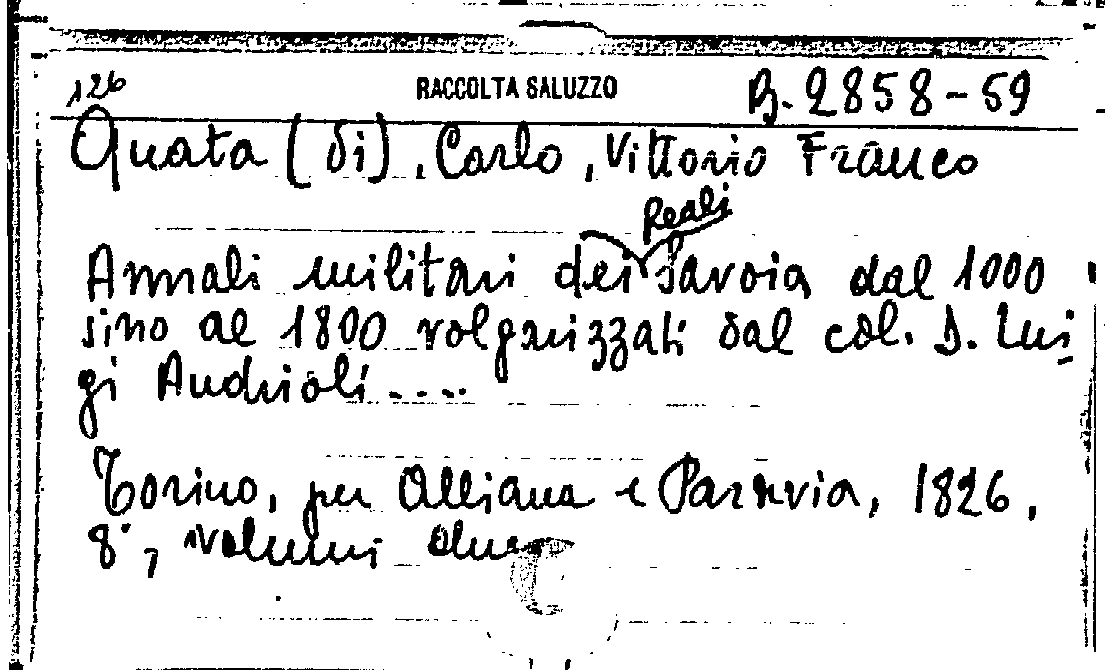 126 RACCOLTA SALUZZO B. 2858-59
Quata (di), Carlo, Vittorio Franco
Reali
Annali militari dei Savoia dal 1000
sino al 1800 volgarizzati dal col. D. Lui
gi Andrioli....
Torino, per Alliana e Paravia, 1826,
8°, volumi due